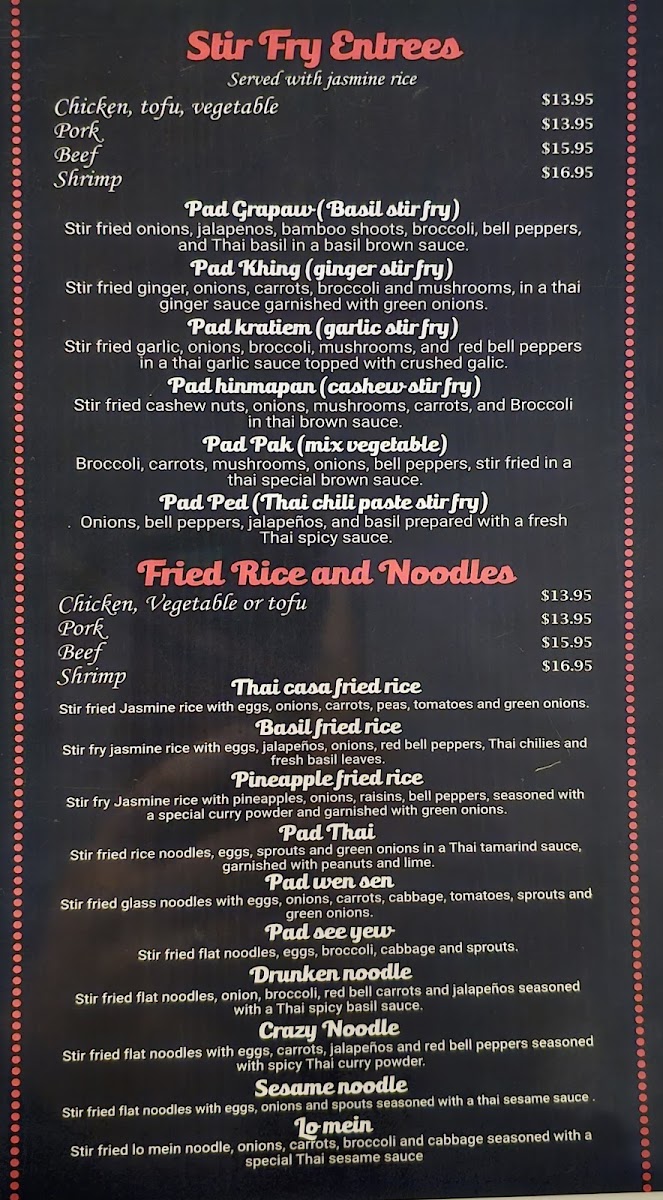 Stir Fry Entrees
Served with jasmine rice
Chicken, tofu, vegetable $13.95
Pork $13.95
Beef $15.95
Shrimp $16.95
Pad Grapaw (Basil stir fry)
Stir fried onions, jalapenos, bamboo shoots, broccoli, bell peppers,
and Thai basil in a basil brown sauce.
Pad Khing (ginger stir fry)
Stir fried ginger, onions, carrots, broccoli and mushrooms, in a thai
ginger sauce garnished with green onions.
Pad kratiem (garlic stir fry)
Stir fried garlic, onions, broccoli, mushrooms, and red bell peppers
in a thai garlic sauce topped with crushed galic.
Pad hinmapan (cashew stir fry)
Stir fried cashew nuts, onions, mushrooms, carrots, and Broccoli
in thai brown sauce.
Pad Pak (mix vegetable)
Broccoli, carrots, mushrooms, onions, bell peppers, stir fried in a
thai special brown sauce.
Pad Ped (Thai chili paste stir fry)
. Onions, bell peppers, jalapeños, and basil prepared with a fresh
Thai spicy sauce.
Fried Rice and Noodles
Chicken, Vegetable or tofu $13.95
Pork $13.95
Beef $15.95
Shrimp $16.95
Thai casa fried rice
Stir fried Jasmine rice with eggs, onions, carrots, peas, tomatoes and green onions.
Basil fried rice
Stir fry jasmine rice with eggs, jalapeños, onions, red bell peppers, Thai chilies and
fresh basil leaves.
Pineapple fried rice
Stir fry Jasmine rice with pineapples, onions, raisins, bell peppers, seasoned with
a special curry powder and garnished with green onions.
Pad Thai
Stir fried rice noodles, eggs, sprouts and green onions in a Thai tamarind sauce,
garnished with peanuts and lime.
Pad wen sen
Stir fried glass noodles with eggs, onions, carrots, cabbage, tomatoes, sprouts and
green onions.
Pad see yew
Stir fried flat noodles, eggs, broccoli, cabbage and sprouts.
Drunken noodle
Stir fried flat noodles, onion, broccoli, red bell carrots and jalapeños seasoned
with a Thai spicy basil sauce.
Crazy Noodle
Stir fried flat noodles with eggs, carrots, jalapeños and red bell peppers seasoned
with spicy Thai curry powder.
Sesame noodle
Stir fried flat noodles with eggs, onions and spouts seasoned with a thai sesame sauce .
Lo mein
Stir fried lo mein noodle, onions, carrots, broccoli and cabbage seasoned with a
special Thai sesame sauce